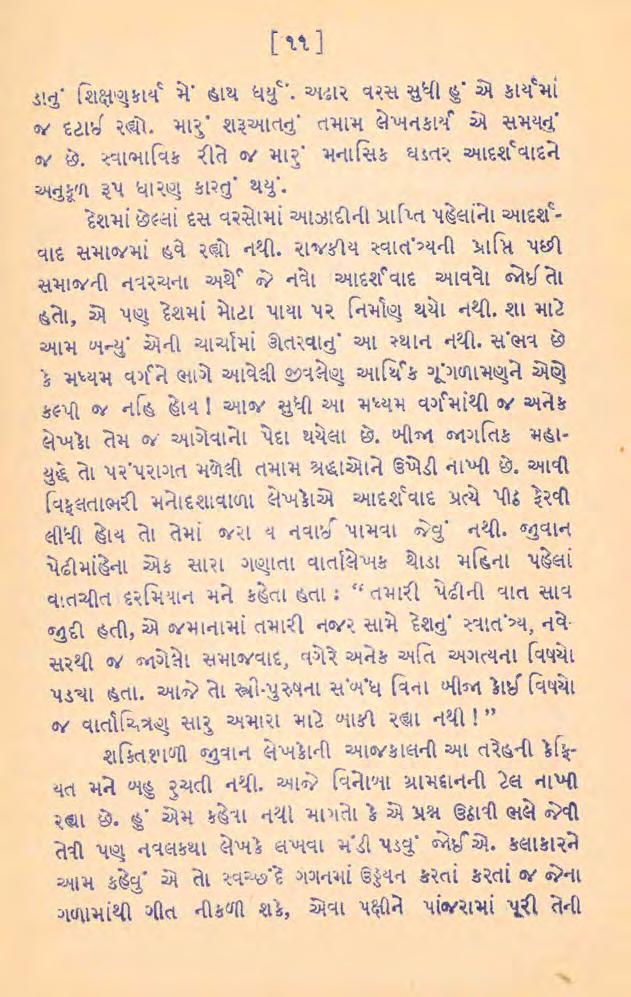 [ ૧૧ ]
ડાનું શિક્ષણકાર્ય મેં હાથ ધર્યું. અઢાર વરસ સુધી હું એ કાર્યમાં
જ દટાઈ રહ્યો. મારું શરૂઆતનું તમામ લેખનકાર્ય એ સમયનું
જ છે. સ્વાભાવિક રીતે જ મારું માનસિક ઘડતર આદર્શવાદને
અનુકૂળ રૂપ ધારણ કારતું થયું.
દેશમાં છેલ્લાં દસ વરસોમાં આઝાદીની પ્રાપ્તિ પહેલાંનો આદર્શ-
વાદ સમાજમાં હવે રહ્યો નથી. રાજકીય સ્વાતંત્ર્યની પ્રાપ્તિ પછી
સમાજની નવરચના અર્થે જે નવો આદર્શવાદ આવવો જોઈતો
હતો, એ પણ દેશમાં મોટા પાયા પર નિર્માણ થયો નથી. શા માટે
આમ બન્યું એની ચર્ચામાં ઊતરવાનું આ સ્થાન નથી. સંભવ છે
કે મધ્યમ વર્ગને ભાગે આવેલી જીવલેણ આર્થિક ગૂંગળામણને એણે
કલ્પી જ નહિ હોય! આજ સુધી આ મધ્યમ વર્ગમાંથી જ અનેક
લેખકો તેમ જ આગેવાનો પેદા થયેલા છે. બીજા જાગતિક મહા-
યુદ્ધે તો પરંપરાગત મળેલી તમામ શ્રદ્ધાઓને ઉખેડી નાખી છે. આવી
વિફલતાભરી મનોદશાવાળા લેખકોએ આદર્શવાદ પ્રત્યે પીઠ ફેરવી
લીધી હોય તો તેમાં જરા ય નવાઈ પામવા જેવું નથી. જુવાન
પેઢીમાંહેના એક સારા ગણાતા વાર્તાલેખક થોડા મહિના પહેલાં
વાતચીત દરમિયાન મને કહેતા હતા : “ તમારી પેઢીની વાત સાવ
જુદી હતી, એ જમાનામાં તમારી નજર સામે દેશનું સ્વાતંત્ર્ય, નવે-
સરથી જ જાગેલો સમાજવાદ, વગેરે અનેક અતિ અગત્યના વિષયો
પડયા હતા. આજે તો સ્ત્રી-પુરુષના સંબંધ વિના બીજા કોઈ વિષયો
જ વાર્તાચિત્રણ સારુ અમારા માટે બાકી રહ્યા નથી ! ”
શક્તિશાળી જુવાન લેખકોની આજકાલની આ તરેહની કેફિ-
યત મને બહુ રુચતી નથી. આજે વિનોબા ગ્રામદાનની ટેલ નાખી
રહ્યા છે. હું એમ કહેવા નથી માગતો કે એ પ્રશ્ન ઉઠાવી ભલે જેવી
તેવી પણ નવલકથા લેખકે લખવા મંડી પડવું જોઈએ. કલાકારને
આમ કહેવું એ તો સ્વચ્છંદે ગગનમાં ઉડ્ડયન કરતાં કરતાં જ જેના
ગળામાંથી ગીત નીકળી શકે, એવા પક્ષીને પાંજરામાં પૂરી તેની